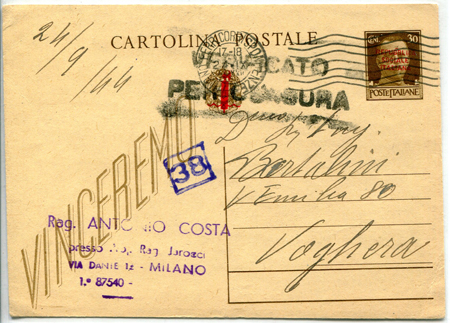 24/9/44
CARTOLINA POSTALE
17-18
CENT. 30
POSTE ITALIANE
VERIFICATO
PER CENSURA
VINCEREMO
38
Bertolini
V. Emilia 80
Voghera
Rag. ANTONIO COSTA
presso Rag.
VIA DANTE 12 - MILANO
1.° 87540 -